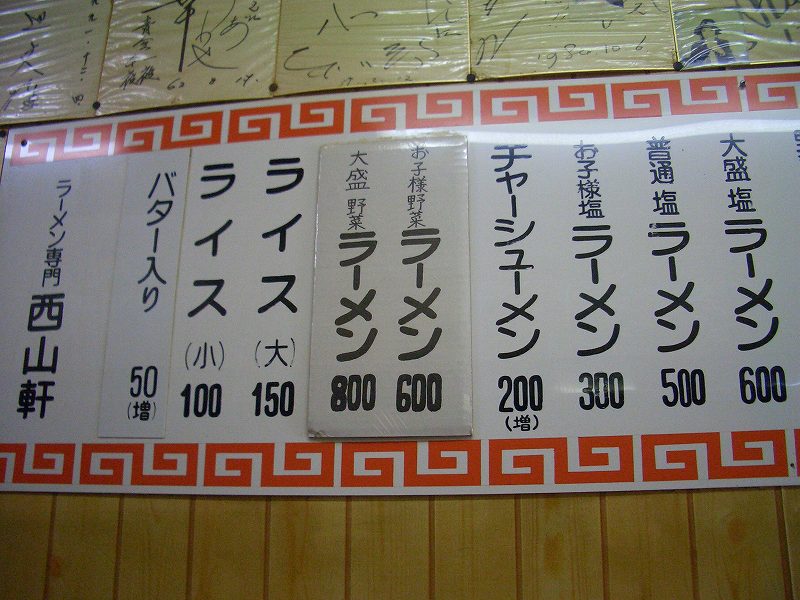 大盛塩ラーメン 600
普通塩ラーメン 500
お子様塩ラーメン 300
チャーシューメン 200 (増)
お子様野菜ラーメン 600
大盛野菜ラーメン 800
ライス (大) 150
ライス (小) 100
バター入り 50 (増)
ラーメン専門 西山軒
1980.10.6